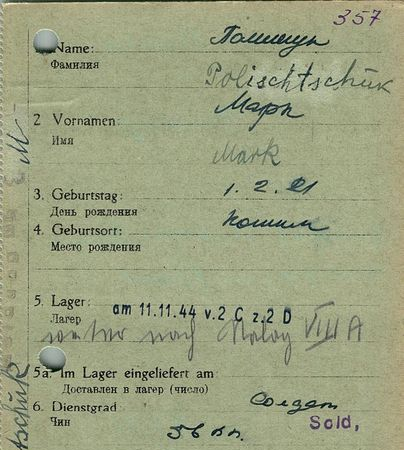 357
Name:
Фамилия
Polischtschuk
2 Vornamen: Марк
Имя
Mark
3. Geburtstag: 1. 2. 21
День рождения
4. Geburtsort:
Место рождения
5. Lager: am 11.11.44 v. 2 C z. 2 D
Лагерь
weiter nach Stalag VIII A
5a. Im Lager eingeliefert am:
Доставлен в лагерь (число)
6. Dienstgrad: Солдат
Чин Sold.